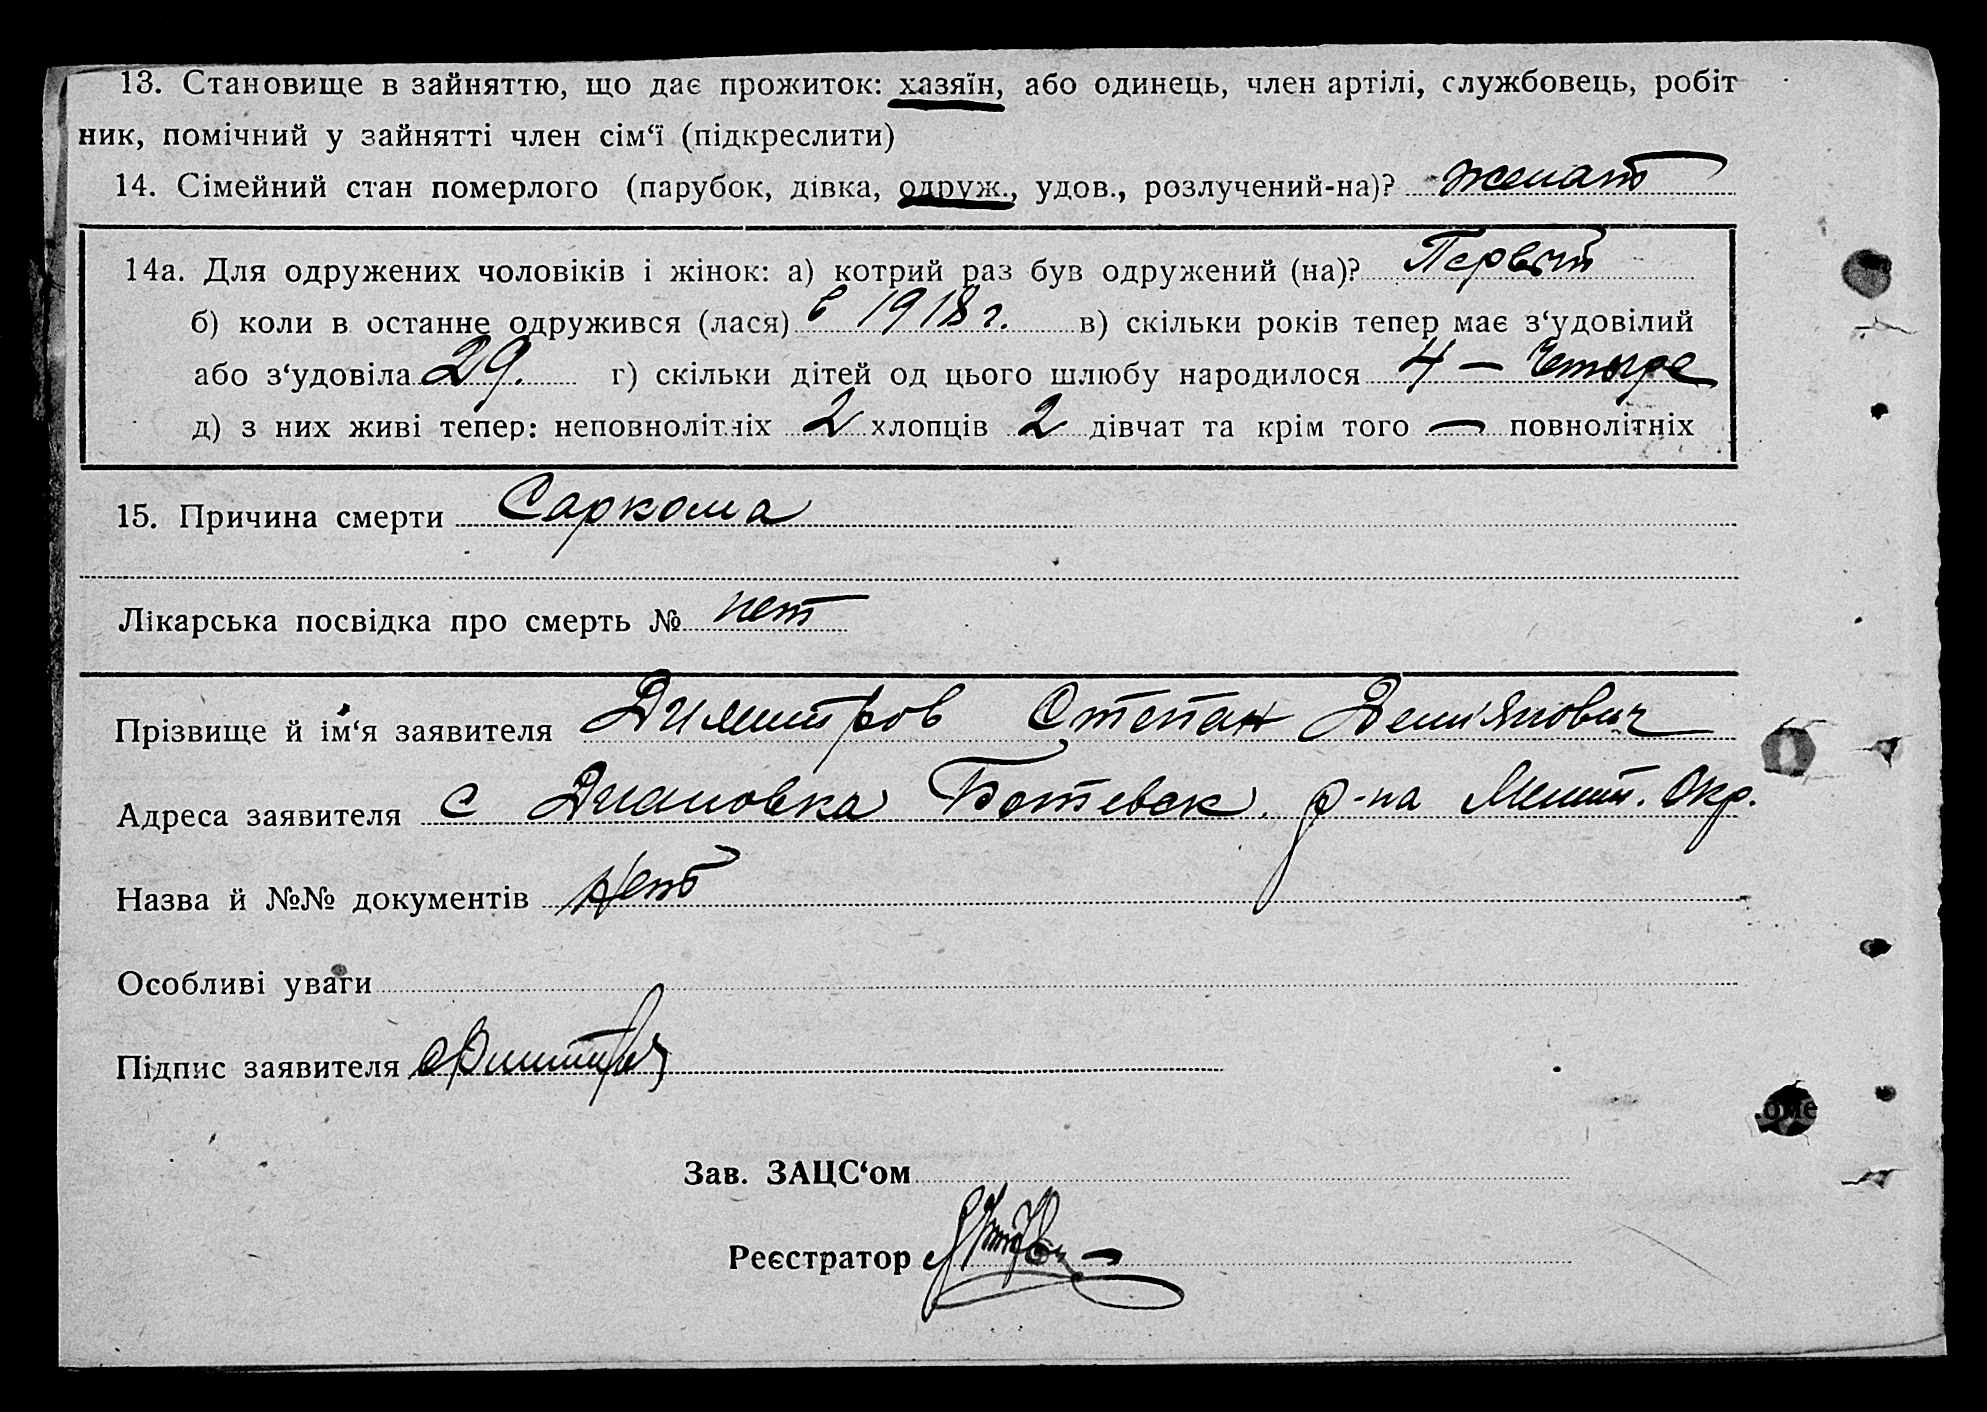 13. Становище в зайняттю, що дає прожиток: хазяїн, або одинець, член артілі, службовець, робіт
ник, помічний у зайнятті член сім‘ї (підкреслити)
14. Сімейний стан померлого (парубок, дівка, одруж., удов., розлучений-на)? женат
14а. Для одружених чоловіків і жінок: а) котрий раз був одружений (на)? Первый
б) коли в останнє одружився (лася) в 1918 г. в) скільки років тепер має з‘удовілий
або з‘удовіла 29. г) скільки дітей од цього шлюбу народилося 4 — Четыре
д) з них живі тепер: неповнолітніх 2 хлопців 2 дівчат та крім того — повнолітніх
15. Причина смерти Саркома
Лікарська посвідка про смерть № нет
Прізвище й ім‘я заявителя Димитров Степан Демианович
Адреса заявителя с Диановка Ботевск. р-на Мелит. Окр.
Назва й №№ документів Нет
Особливі уваги
Підпис заявителя
Зав. ЗАЦС‘ом
Реєстратор